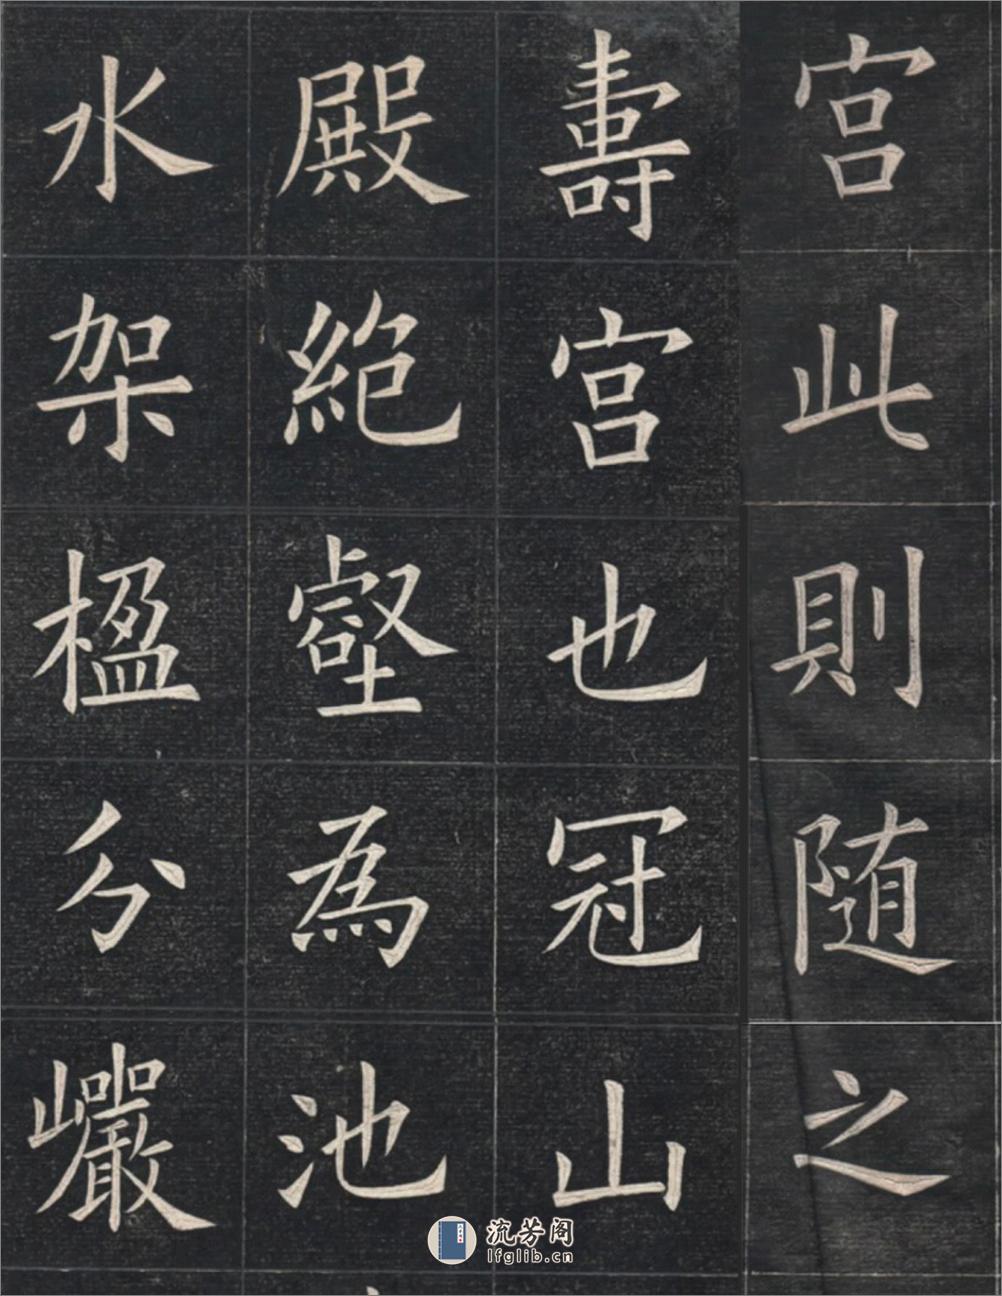 宫此則随之
壽宫也冠山
殿絶壑為池
水架楹分巖
流芳阁
lfglib.cn